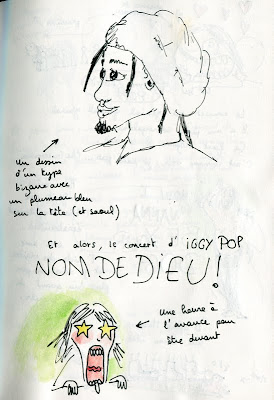 un dessin
d'un type
bizarre avec
un plumeau bleu
sur la tête (et saoul)
Et alors, le concert d'IGGY POP
NOM DE DIEU!
une heure à
l'avance pour
être devant